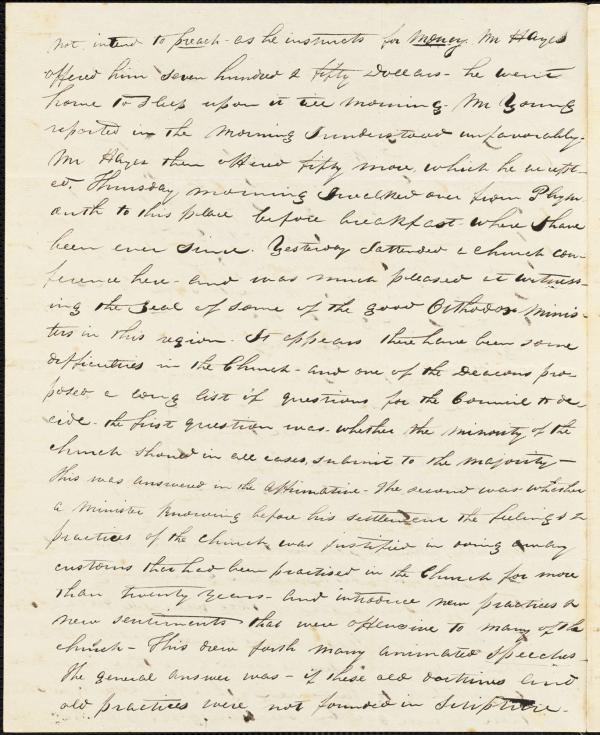 not, intend to preach - as he instructs for money. Mr Hayes
offered him seven hundred & fifty Dollars - he went
home to sleep upon it till morning. Mr Young
reported in the morning I understood unfavorably.
Mr Hayes then offered fifty more, which he accept-
ed. Thursday morning I walked over from Plym
outh to this place before breakfast - where I have
been ever since. Yesterday I attended a church con-
ference here and was much pleased at witness-
ing the zeal of some of the good Orthodox Minis-
ters in this region. It appears there have been some
difficulties in the Church - and one of the Deacons pro-
posed a long list of questions for the Council to de-
cide - the first question was - whether the minority of the
church should in all cases, submit to the majority -
This was answered in the affirmative - The second was whether
a minister knowing before his settlement the feelings &
practices of the church was justified in doing away
customs that had been practised in the Church for more
than twenty years - and introduce new practices &
new sentiments that were offensive to many of the
church - This drew forth many animated speeches -
The general answer was - if these old doctrines and
old practices were not founded in Scripture -